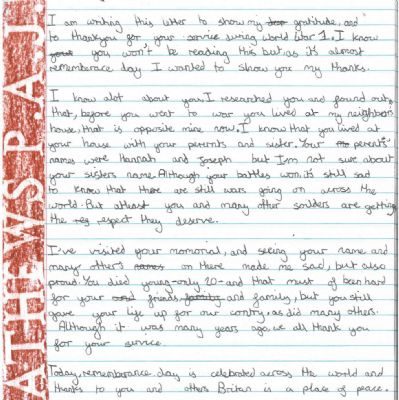 I am writing this letter to show my gratitude, and
to thankyou for your service during World War 1. I know
you won't be reading this but as it's almost
rememberance day I wanted to show you my thanks.
I know alot about you, I researched you and found out
that, before you went to war you lived at my neighbors
house, that is opposite mine now. I know that you lived at
your house with your perents and sister. Your perents'
names were Hannah and Joseph but I'm not sure about
your sisters name. Although your battles won, it's still sad
to know that there are still wars going on across the
world. But atleast you and many other soilders are getting
the respect they deserve.
I've visited your momorial, and seeing your name and
many others on there made me sad, but also
proud. You died young-only 20-and that must of been hard
for your friends and family, but you still
gave your life up for our contry, as did many others.
Although it was many years ago, we all thank you
for your service.
Today, rememberance day is celebrated across the world and
thanks to you and others Britan is a place of peace.
ATHEWS P.A.J.